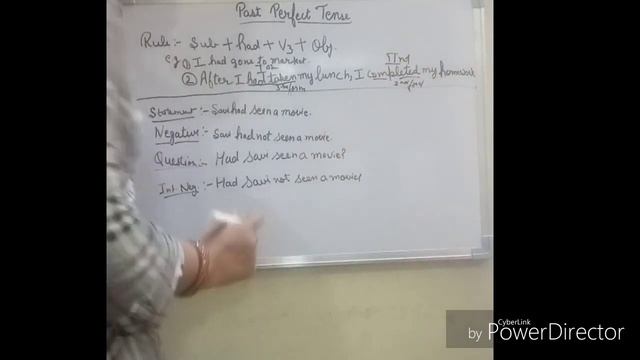 Past Perfect Tense
Rule:- Sub + had + V3 + Obj.
eg 1) I had gone to market.
IInd
② After I had taken my lunch, I completed my homework
Statement:- Savi had seen a movie.
Negative:- Savi had not seen a movie.
Question:- Had Savi seen a movie?
Int Neg:- Had Savi not seen a movie?
CyberLink
by PowerDirector